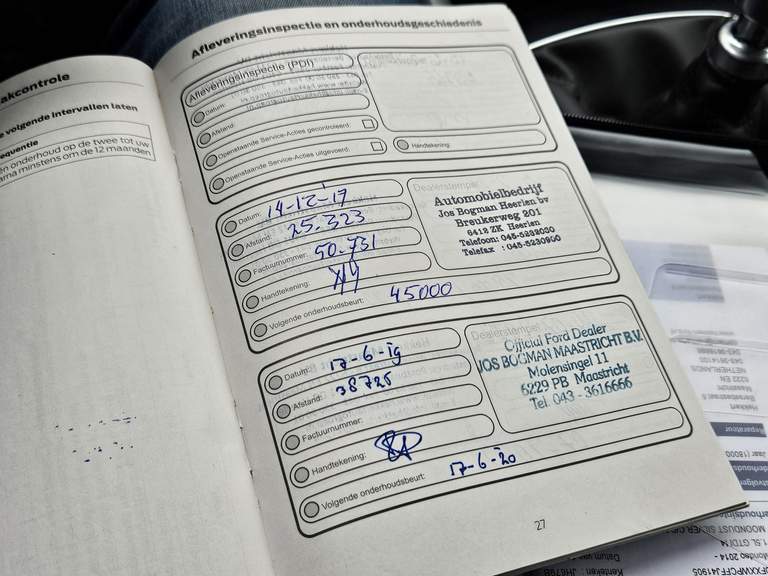 akcontrole
e volgende intervallen laten
equentie
en onderhoud op de twee tot uw
ama minstens om de 12 maanden
Afleveringsinspectie en onderhoudsgeschiedenis
Afleveringsinspectie (PDI)
Datum:
Afstand:
Openstaande Service-Acties gecontroleerd:
Openstaande Service-Acties uitgevoerd:
Handtekening:
Datum: 14-12-17
Afstand: 25.323
Factuurnummer: 50.731
Handtekening:
Volgende onderhoudsbeurt: 45000
Dealerstempel
Automobielbedrijf
Jos Bogman Heerlen bv
Breukerweg 201
6412 ZK Heerlen
Telefoon: 045-5232030
Telefax : 045-5230900
Datum: 17-6-19
Afstand: 38726
Factuurnummer:
Handtekening:
Volgende onderhoudsbeurt: 17-6-20
Dealerstempel
Official Ford Dealer
JOS BOGMAN MAASTRICHT B.V.
Molensingel 11
6229 PB Maastricht
Tel. 043 - 3616666
27
NETHERLANDS
Maastricht
Hekkert
Reparateur
MOONDUST SILVER
1.5L GTDI
Mondeo 2014 -
Datum van
Kenteken :